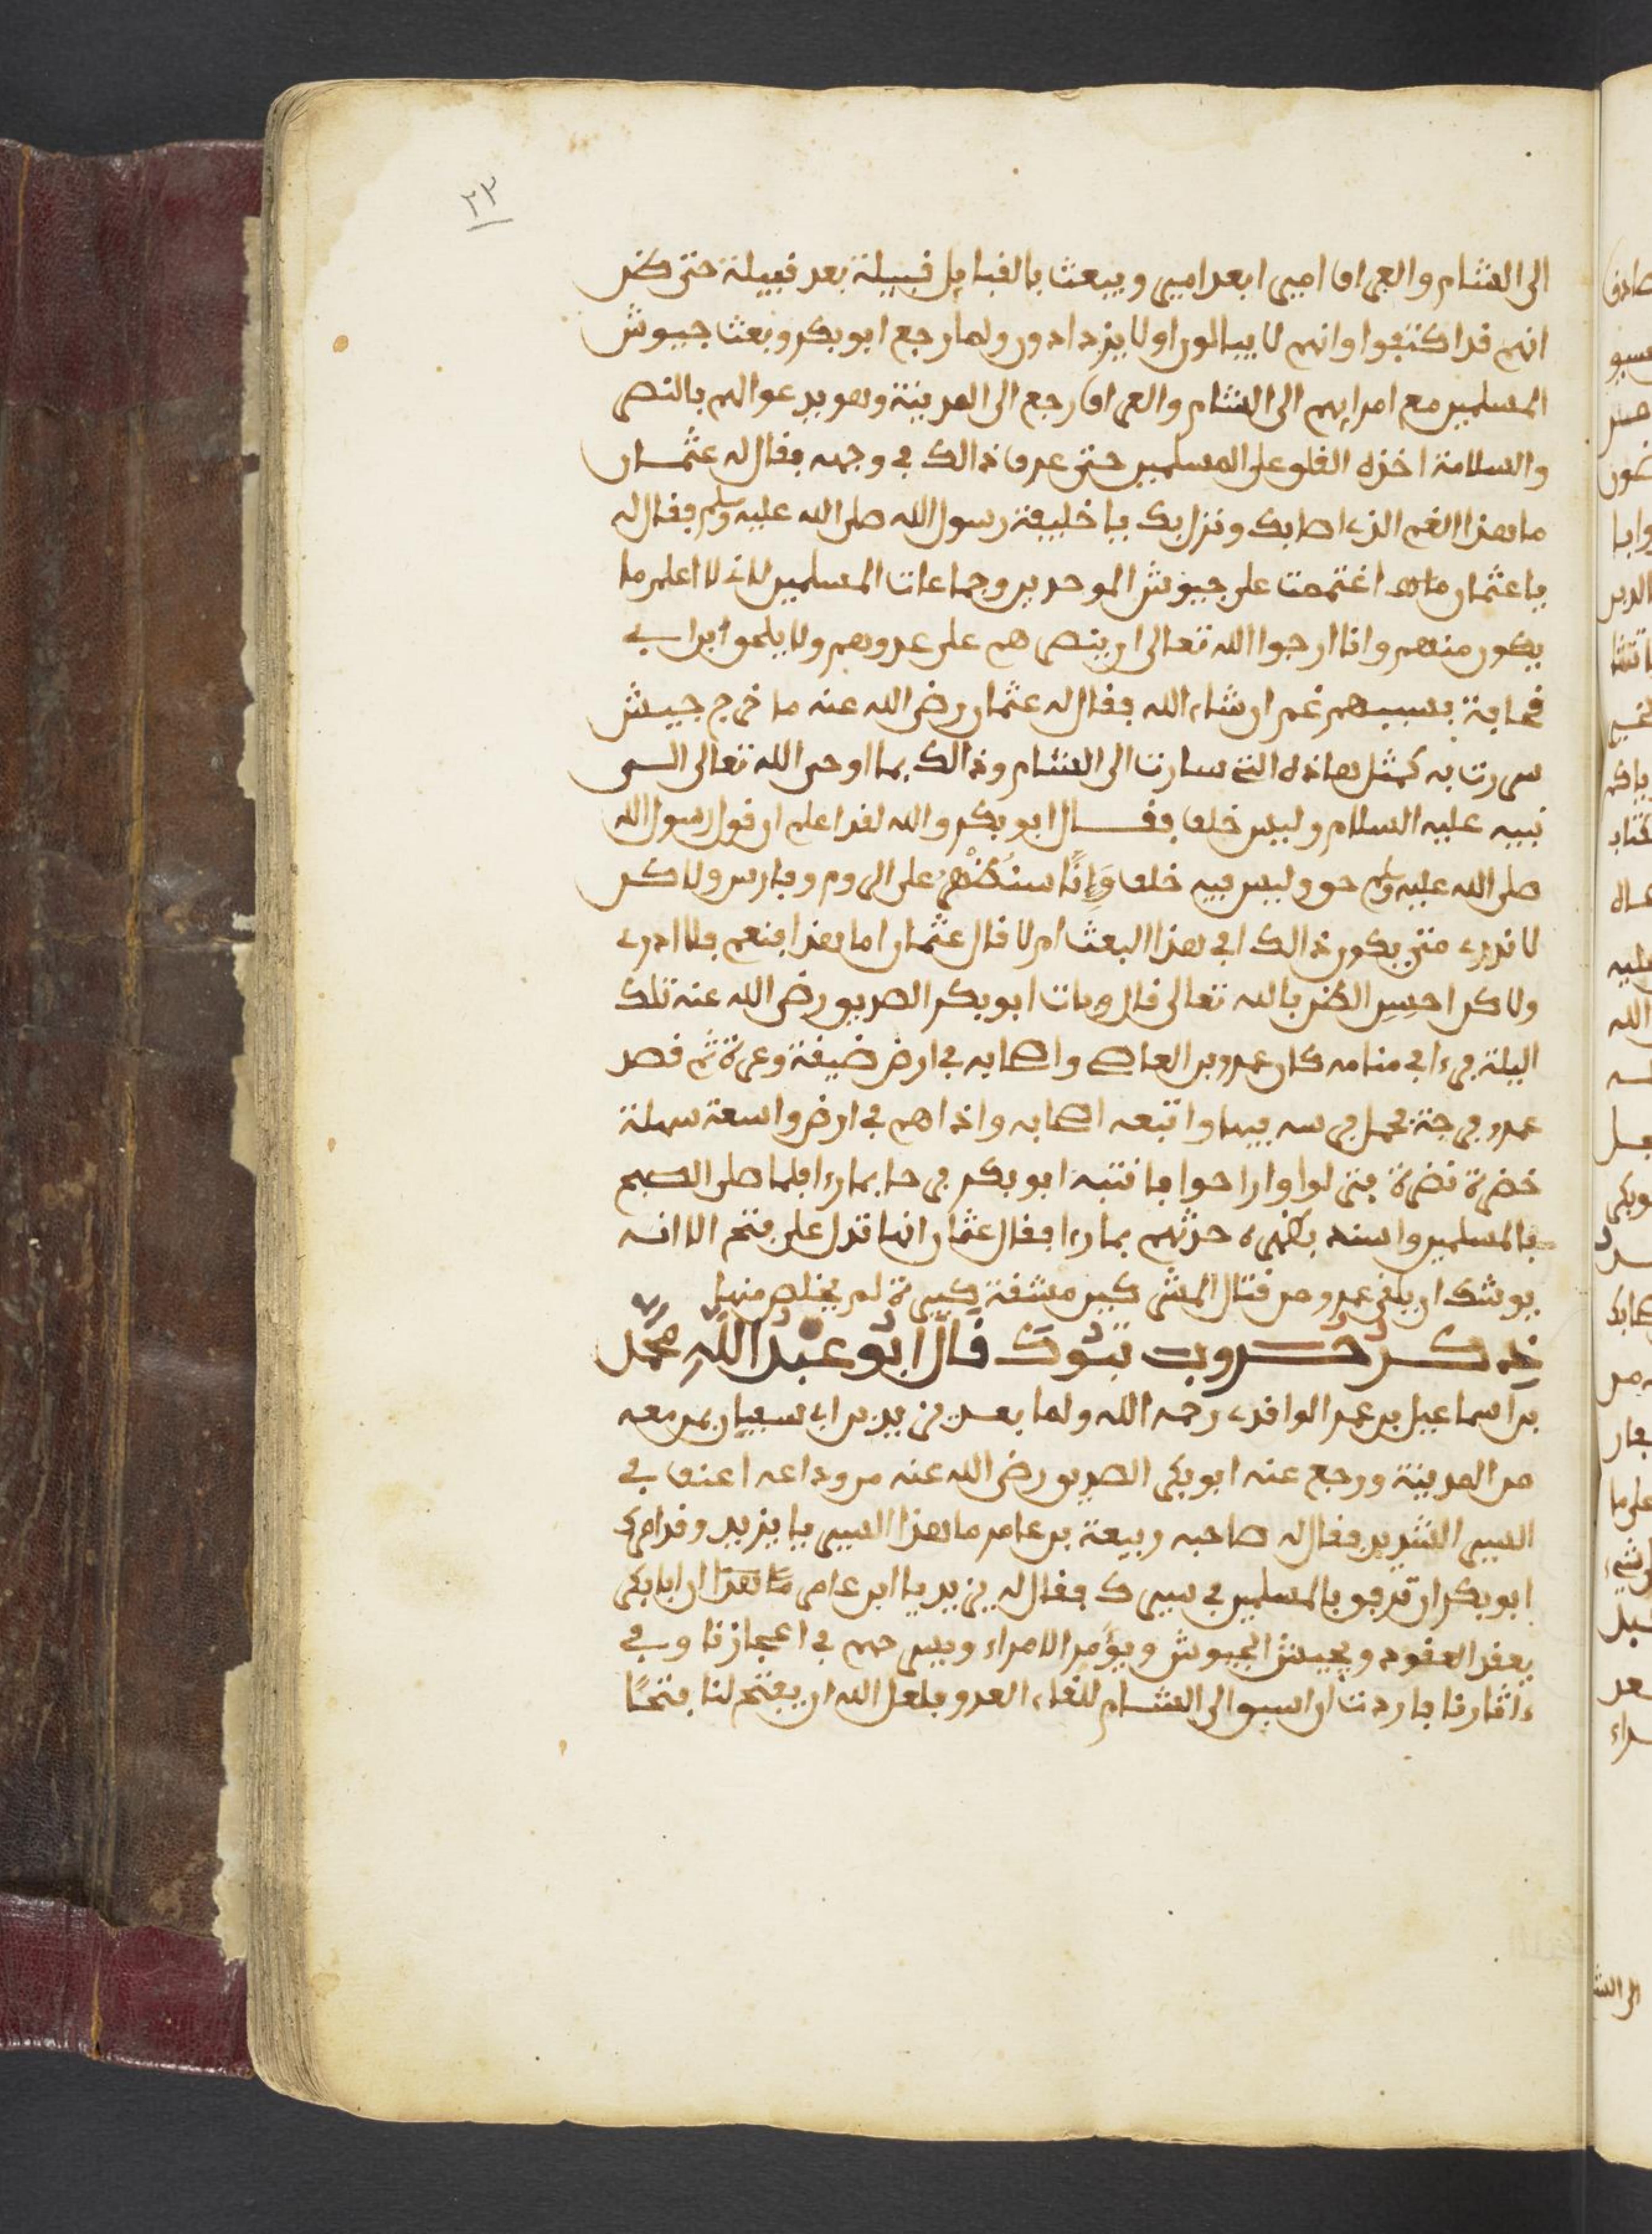 ٢٣
الى الشام والعراق اميرا بعد امير ويبعث بالقبايل قبيلة بعد قبيلة حتى ظن
انهم قد اكتفوا وانهم لا يبالون او لا يزدادون ولما رجع ابو بكر وبعث جيوش
المسلمين مع امرايهم الى الشام والعراق رجع الى المدينة وهو يدعوا لهم بالنصر
والسلامة اخذه القلق على المسلمين حتى عرف ذالك في وجهه فقال له عثمان
ما هذا الغم الذي اصابك ونزل بك يا خليفة رسول الله صلى الله عليه وسلم فقال له
يا عثمان اغتممت على جيوش الموحدين وجماعات المسلمين لاني لا اعلم ما
يكون منهم وانا ارجوا الله تعالى ان ينصرهم على عدوهم ولا يلحق ابن ابي
قحافة بسببهم غم ان شاء الله فقال له عثمان رضي الله عنه ما خرج جيش
سررت به كمثل هاذه التي سارت الى الشام وذالك بما اوحى الله تعالى الى
نبيه عليه السلام وليس خلف فقال ابو بكر والله لقد اعلم ان قول رسول الله
صلى الله عليه وسلم حق وليس فيه خلف وَإِنَّا سنُظْهَر على الروم وفارس ولاكن
لا ندري متى يكون ذالك افي هذا البعث ام لا قال عثمان اما هذا فنعم فلا ادري
ولاكن احسِنِ الظن بالله تعالى قال وبات ابو بكر الصديق رضي الله عنه تلك
اليلة فرءا في منامه كان عمرو بن العاصي واصحابه في ارض ضيقة وعرة ثم قصد
عمرو فرجة فحمل فرسه فيها واتبعه اصحابه واذا هم في ارض واسعة سهلة
خضرة نضرة فنزلوا واراحوا فانتبه ابو بكر فرحا بما رءا فلما صلى الصبح
بالمسلمين واسند بظهره حدثهم بما رءا فقال عثمان انها تدل على فتح الا انه
يوشك ان يلقى عمرو من قتال المشركين مشقة كبيرة ثم يخلص منها
ذكر حروب تبوك قال ابو عبد الله محمد
بن اسماعيل بن عمر الواقدي رحمه الله ولما بعد يزيد بن ابي سفيان بمن معه
من المدينة ورجع عنه ابو بكر الصديق رضي الله عنه من وداعه اعنف في
السير الشديد فقال له صاحبه ربيعة بن عامر ما هذا السير يا يزيد وقد امرك
ابو بكر ان ترفق بالمسلمين في سيرك فقال له يزيد يا ابن عامر ما هذا ان ابا بكر
يعقد العقود ويجيش الجيوش ويؤمر الامراء ويسرحهم في اعجازنا وفي
ءاثارنا فاردت ان اسبق الى الشام للقاء العدو فلعل الله ان يفتح لنا فتحًا